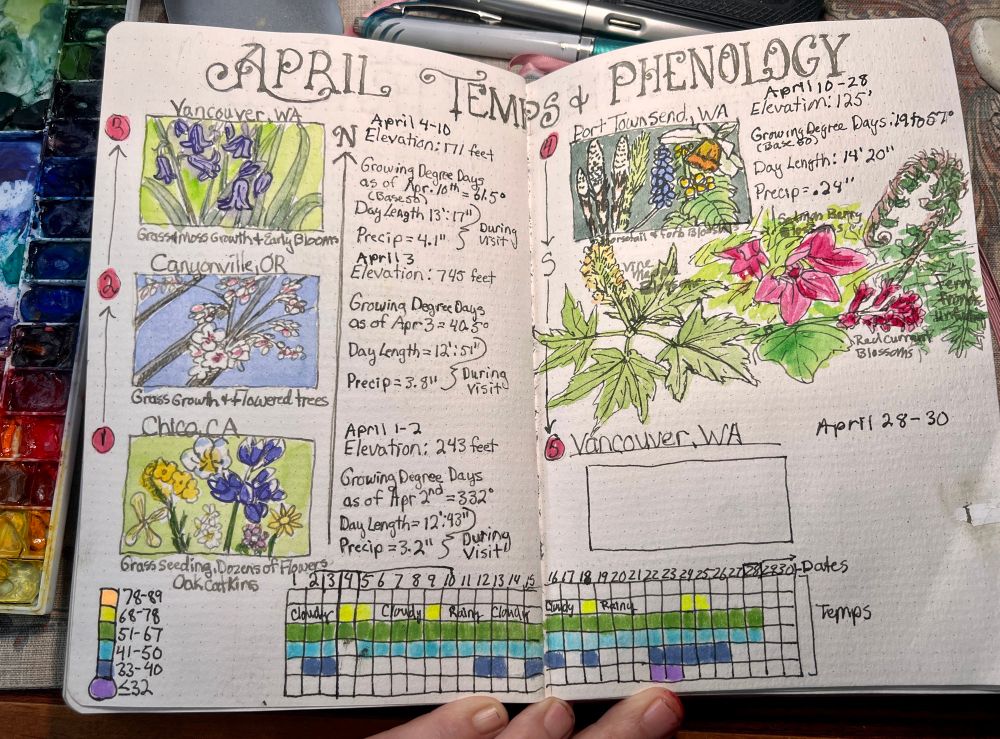 APRIL TEMPS & PHENOLOGY
3
Vancouver, WA
Grass & moss Growth & Early Blooms
N
April 4-10
Elevation: 171 feet
Growing Degree Days
as of Apr. 10th = 61.5°
(Base 50)
Day Length 13':17"
Precip = 4.1"
During
Visit
2
Canyonville, OR
Grass Growth & Flowered trees
April 3
Elevation: 745 feet
Growing Degree Days
as of Apr 3 = 40.5°
Day Length = 12':51"
Precip = 3.8"
During
Visit
1
Chico, CA
Grass Seeding, Dozens of Flowers
Oak Catkins
April 1-2
Elevation: 243 feet
Growing Degree Days
as of Apr 2nd = 332°
Day Length = 12':43"
Precip = 3.2"
During
Visit
4
Port Townsend, WA
Horsetail & Forb Blossoms
April 10-28
Elevation: 125'
Growing Degree Days: 19 to 57°
(Base 50)
Day Length: 14' 20"
Precip = .24"
Salmon Berry
Blossoms
Vine
Maple
Fern
Fronds
Unfurling
Red Currant
Blossoms
S
5
Vancouver, WA
April 28-30
1 2 3 4 5 6 7 8 9 10 11 12 13 14 15 16 17 18 19 20 21 22 23 24 25 26 27 28 29 30 Dates
Cloudy Cloudy Rainy Cloudy Cloudy Rainy
Temps
78-89
68-78
51-67
41-50
33-40
≤32